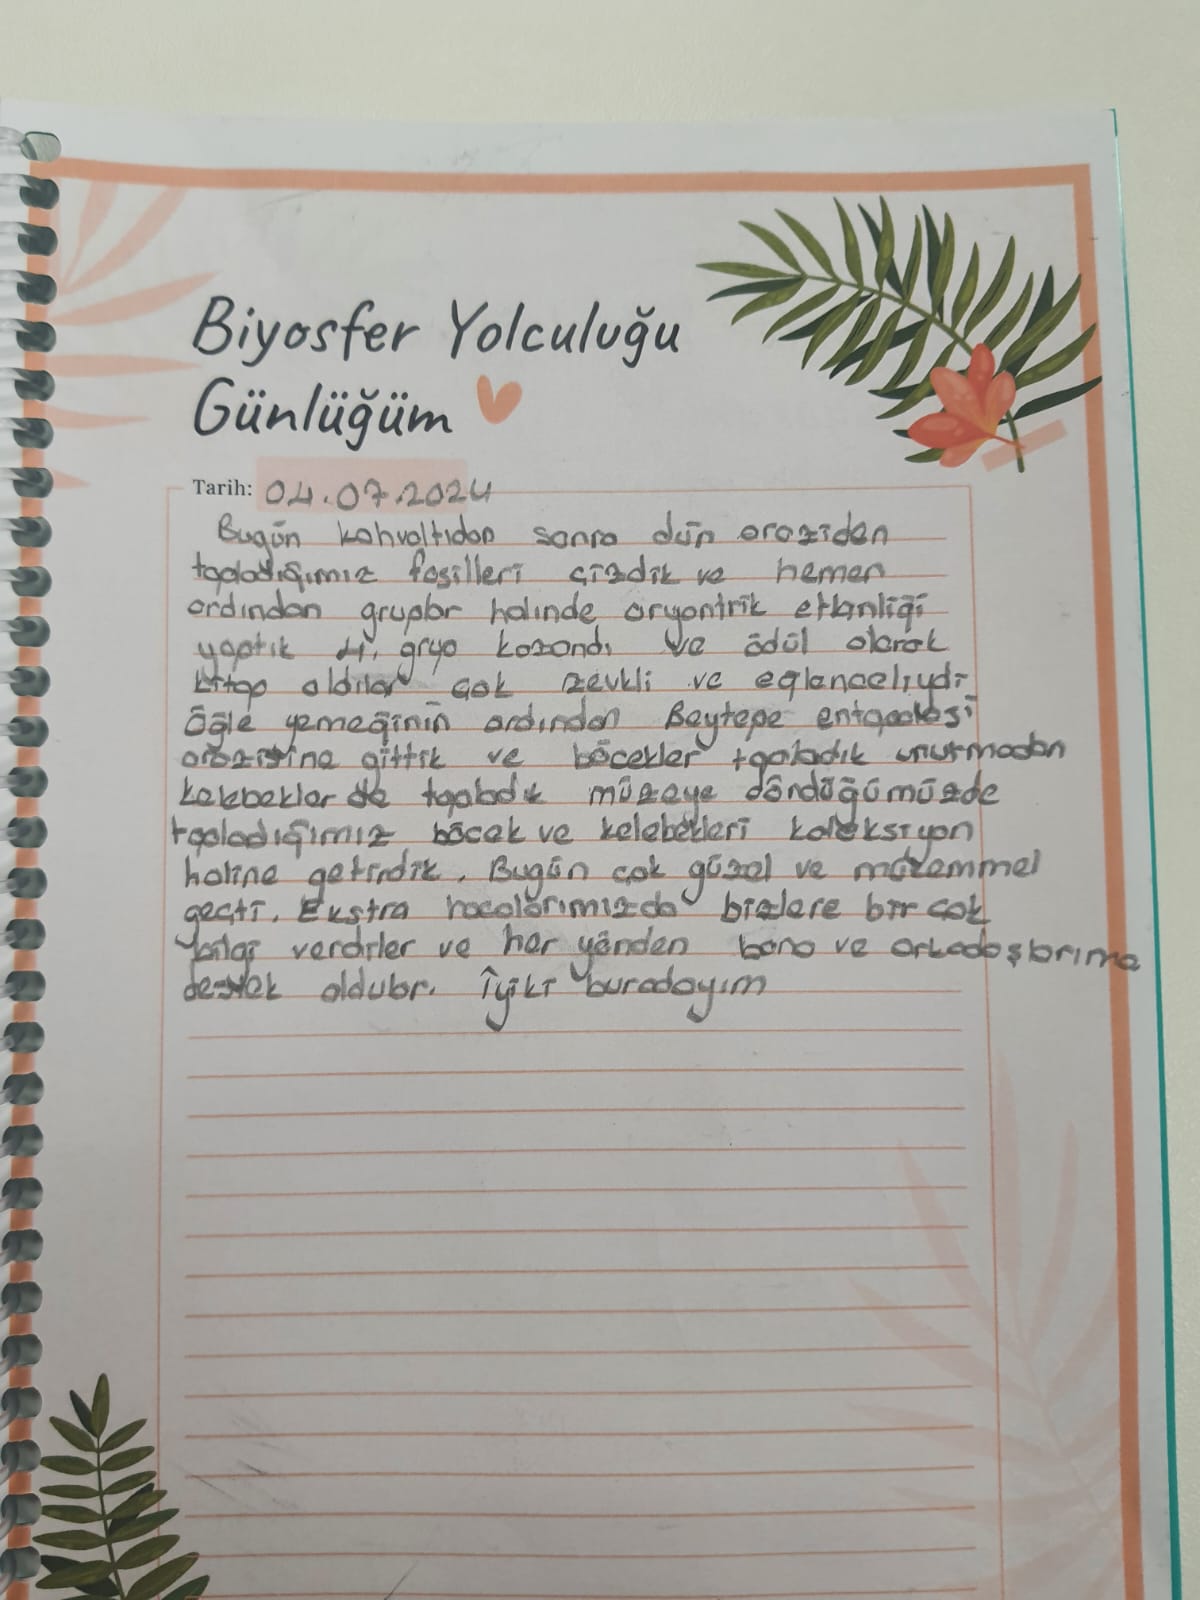 Biyosfer Yolculuğu
Günlüğüm
Tarih: 04.07.2024
Bugün kahvaltıdan sonra dün araziden
topladığımız fosilleri çizdik ve hemen
ardından gruplar halinde oryantrik etkinliği
yaptık 4. grup kazandı ve ödül olarak
kitap aldılar çok zevkli ve eğlenceliydi
Öğle yemeğinin ardından Beytepe
arazisine gittik ve böcekler topladık unutmadan
kelebekler de topladık müzeye döndüğümüzde
topladığımız böcek ve kelebekleri koleksiyon
haline getirdik. Bugün çok güzel ve mükemmel
geçti. Ekstra hocalarımızda bizlere bir çok
bilgi verdiler ve her yönden bana ve arkadaşlarıma
destek oldular. İyiki buradayım